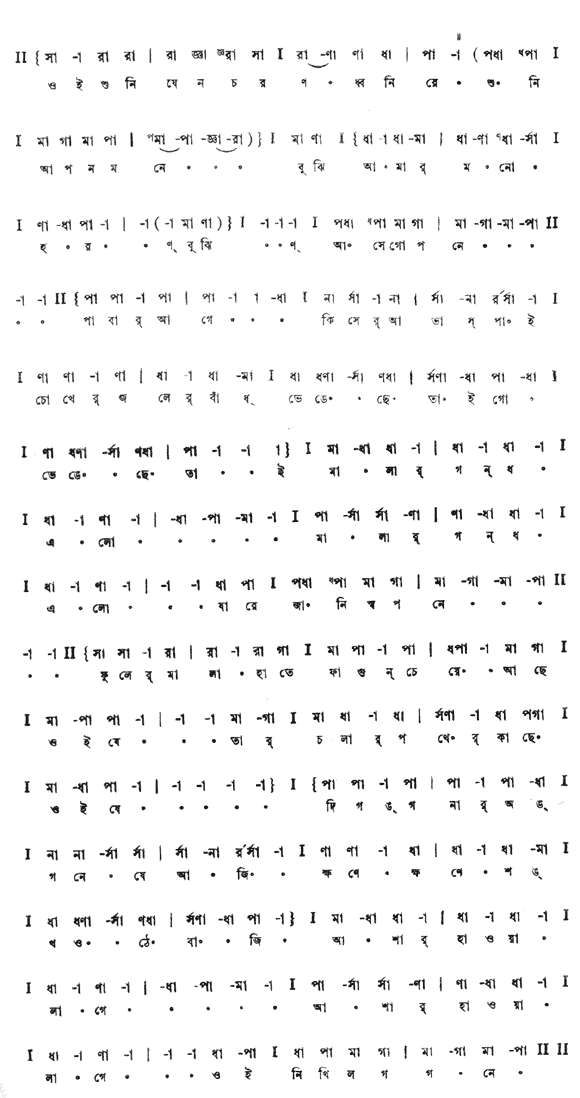 ॥
II { সা -া রা রা | রা জ্ঞা জ্ঞরা সা I রা -ণা ণা ধা | পা -া (পধা ধপা I
ও ই শু নি যে ন চ র ণ ॰ ধ্ব নি রে ॰ শু॰ নি
I মা গা মা পা | পমা -পা -জ্ঞা -রা ) } I মা ণা I { ধা -া ধা -মা | ধা -ণা ধা -র্সা I
আ প ন ম নে ॰ ॰ ॰ বু ঝি আ ॰ মা র্ ম ॰ নো ॰
I ণা -ধা পা -া | -া ( -া মা ণা ) } I -া -া -া I পধা ধপা মা গা | মা -গা -মা -পা II
হ ॰ র ॰ ॰ ণ্ বু ঝি ॰ ॰ ণ্ আ॰ সে গো প নে ॰ ॰ ॰
-া -া II { পা পা -া পা | পা -া া -ধা I না র্সা -া না | র্সা -না র্রর্সা -া I
॰ ॰ পা বা র্ আ গে ॰ ॰ ॰ কি সে র্ আ ভা স্ পা॰ ই
I ণা ণা -া ণা | ধা -া ধা -মা I ধা ধণা -র্সা ণধা | র্সণা -ধা পা -ধা I
চো খে র্ জ লে র্ বাঁ ধ্ ভে ঙে॰ ॰ ছে॰ তা॰ ॰ ই গো ॰
I ণা ধণা -র্সা ণধা | পা -া -া া } I মা -ধা ধা -া | ধা -া ধা -া I
ভে ঙে॰ ॰ ছে॰ তা ॰ ॰ ই মা ॰ লা র্ গ ন্ ধ ॰
I ধা -া ণা -া | -ধা -পা -মা -া I পা -র্সা র্সা -ণা | ণা -ধা ধা -া I
এ ॰ লো ॰ ॰ ॰ ॰ ॰ মা ॰ লা র্ গ ন্ ধ ॰
I ধা -া ণা -া | -া -া ধা পা I পধা ধপা মা গা | মা -গা -মা -পা II
এ ॰ লো ॰ ॰ ॰ যা রে জা॰ নি স্ব প নে ॰ ॰ ॰
-া -া II { সা সা -া রা | রা -া রা গা I মা পা -া পা | ধপা -া মা গা I
॰ ॰ ফু লে র্ মা লা ॰ হা তে ফা গু ন্ চে য়ে॰ ॰ আ ছে
I মা -পা পা -া | -া -া মা -গা I মা ধা -া ধা | র্সণা -া ধা পগা I
ও ই যে ॰ ॰ ॰ তা র্ চ লা র্ প থে॰ র্ কা ছে॰
I মা -ধা পা -া | -া -া -া -া } I { পা পা -া পা | পা -া পা -ধা I
ও ই যে ॰ ॰ ॰ ॰ ॰ দি গ ঙ্ গ না র্ অ ঙ্
I না না -র্সা র্সা | র্সা -না র্রর্সা -া I ণা ণা -া ধা | ধা -া ধা -মা I
গ নে ॰ যে আ ॰ জি॰ ॰ ক্ষ ণে ॰ ক্ষ ণে ॰ শ ঙ্
I ধা ধণা -র্সা ণধা | র্সণা -ধা পা -া } I মা -ধা ধা -া | ধা -া ধা -া I
খ ও॰ ॰ ঠে॰ বা॰ ॰ জি ॰ আ ॰ শা র্ হা ও য়া ॰
I ধা -া ণা -া | -ধা -পা -মা -া I পা -র্সা র্সা -ণা | ণা -ধা ধা -া I
লা ॰ গে ॰ ॰ ॰ ॰ ॰ আ ॰ শা র্ হা ও য়া ॰
I ধা -া ণা -া | -া -া ধা -পা I ধা পা মা গা | মা -গা মা -পা II II
লা ॰ গে ॰ ॰ ॰ ও ই নি খি ল গ গ ॰ নে ॰